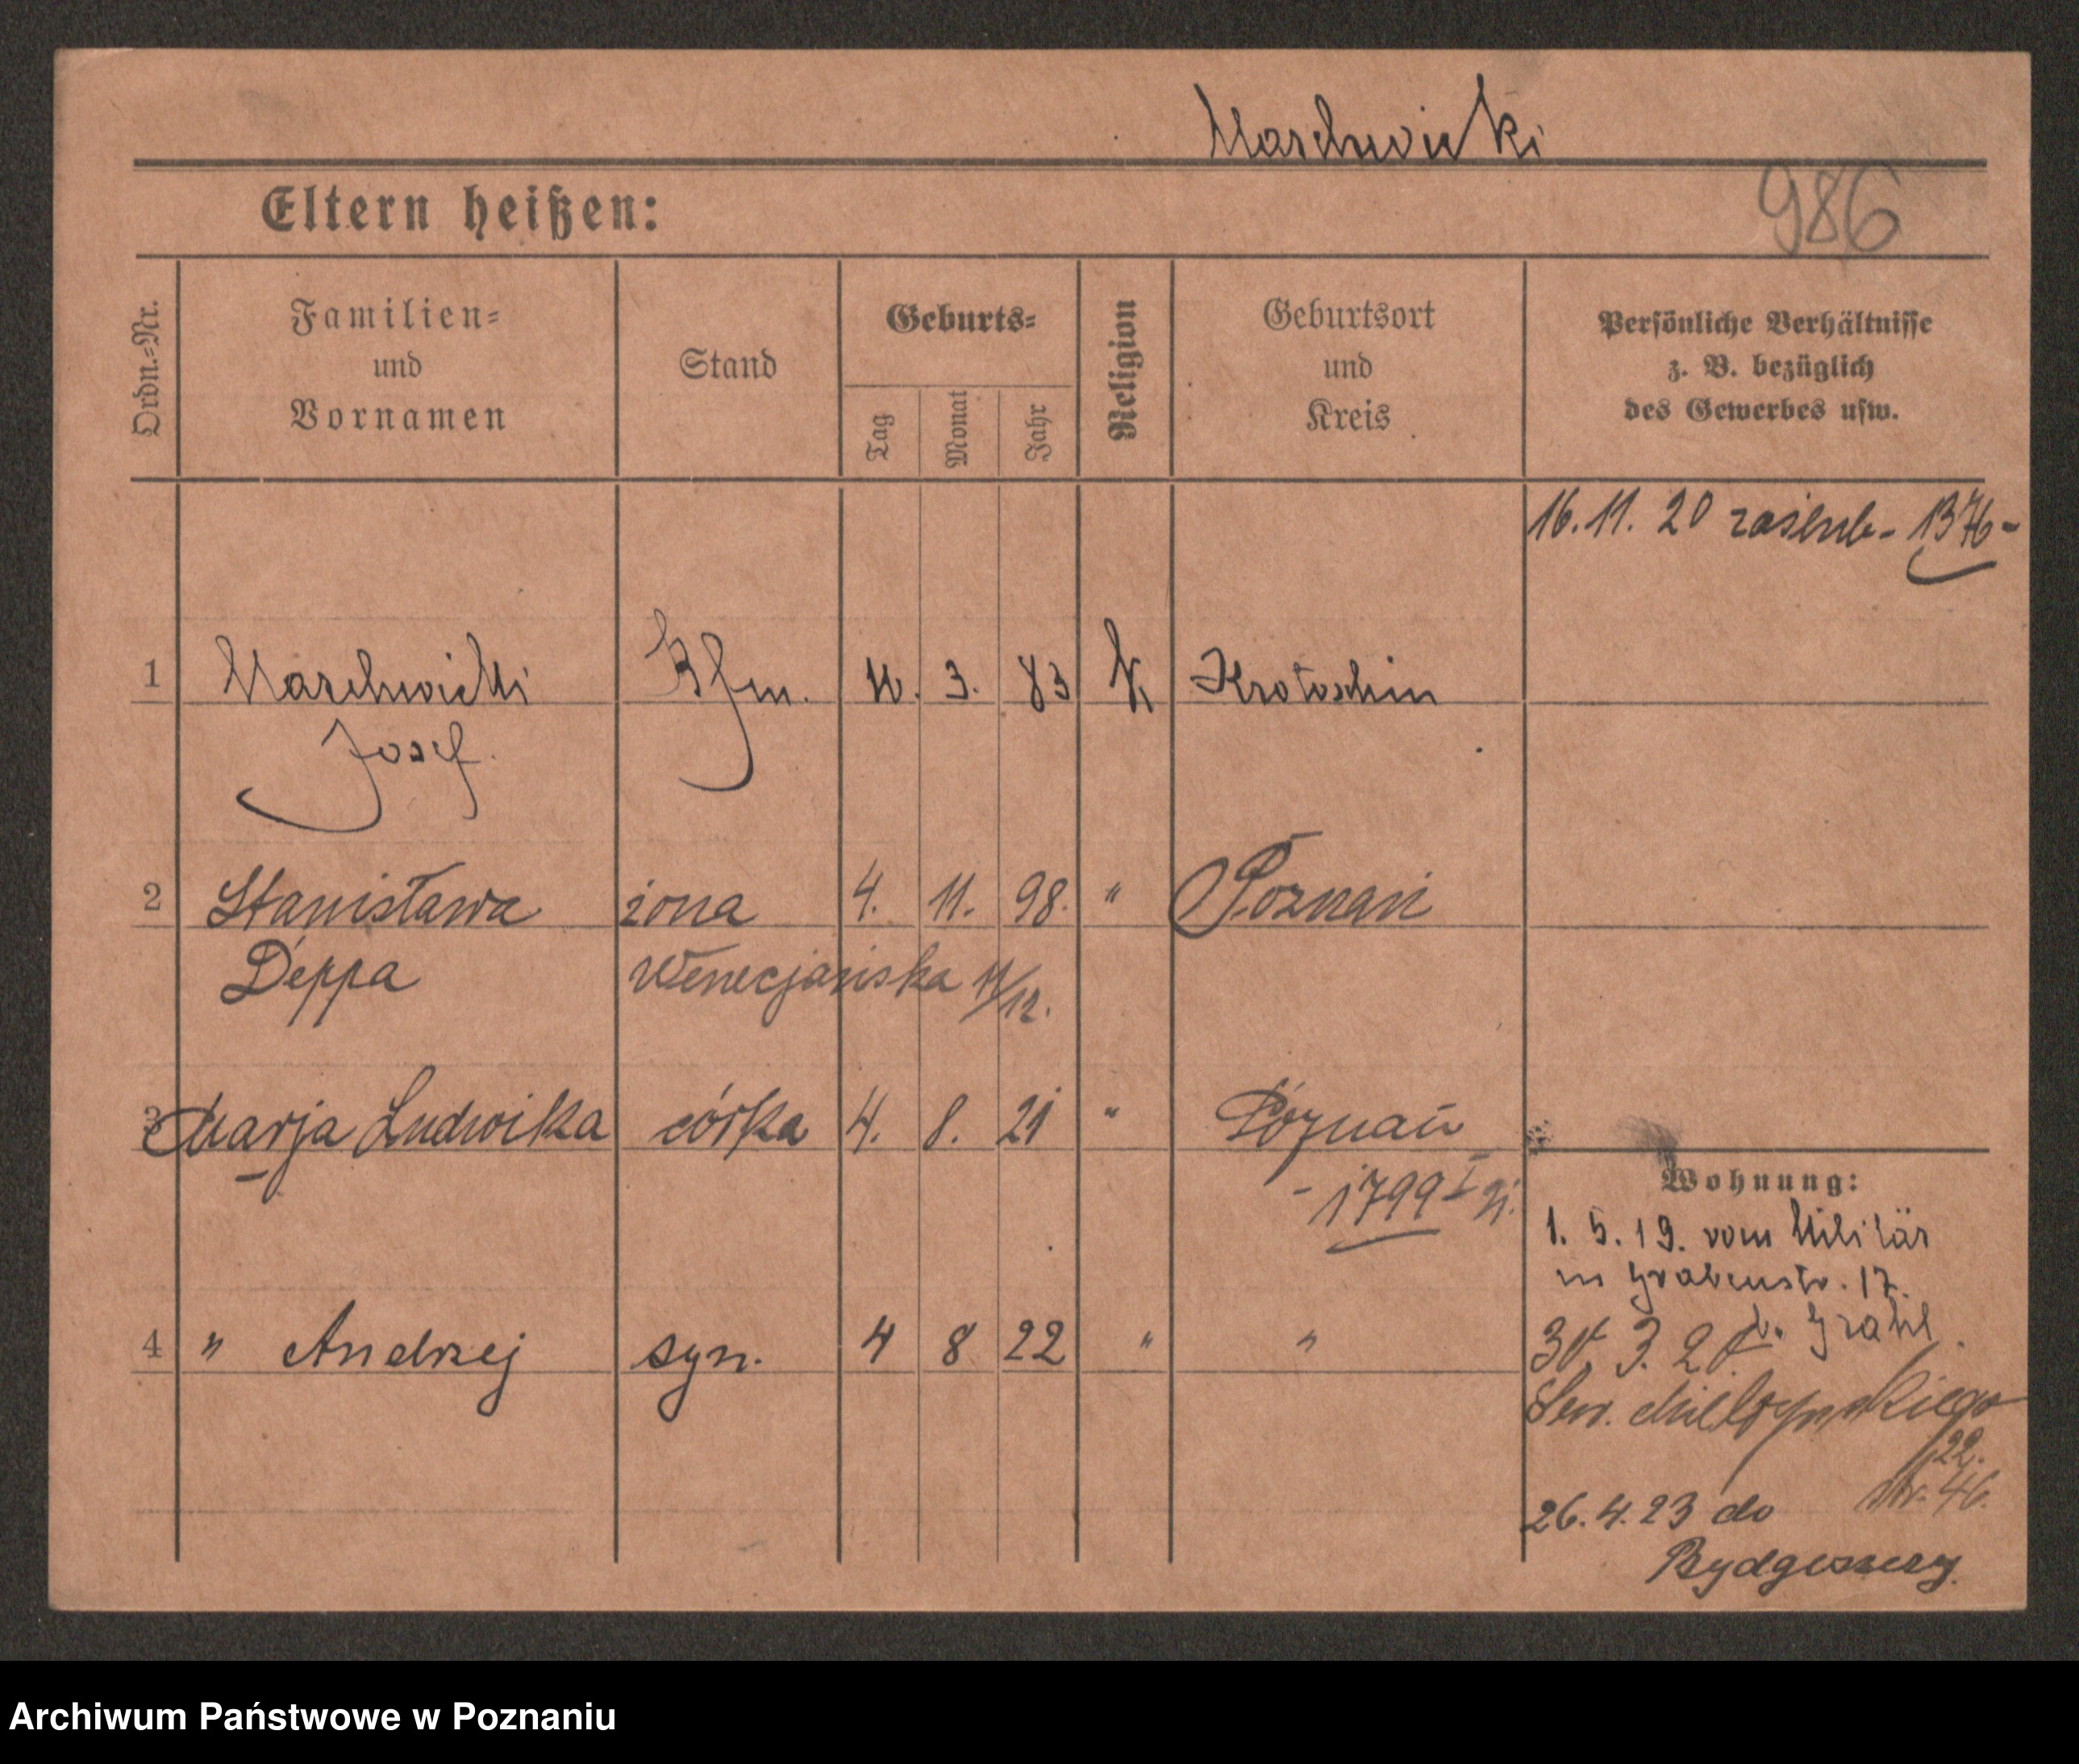 Marchwicki
986
Eltern heißen:
Ordn.-Nr.
Familien-
und
Vornamen
Stand
Geburts-
Tag
Monat
Jahr
Religion
Geburtsort
und
Kreis
Persönliche Verhältnisse
z. B. bezüglich
des Gewerbes usw.
16. 11. 20 zaślub. 1376
1 Marchwicki Kfm. 10. 3. 83 k Krotoschin
Josef.
2 Stanisława żona 4. 11. 98. " Poznań
Deppa Wenecjańska 11/12.
3 Marja Ludwika córka 4. 8. 21 " Poznań
- 1799 I
Wohnung:
1. 5. 19. vom Militär
in Grabenstr. 17.
b. Grahl.
4 " Andrzej syn. 4 8 22 " " 30. 3. 20
Sew. Mielżyńskiego
22.
46.
26. 4. 23 do
Bydgoszczy.
Archiwum Państwowe w Poznaniu